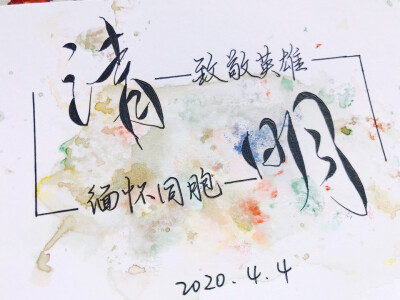 清
致敬英雄
明
缅怀同胞
2020.4.4